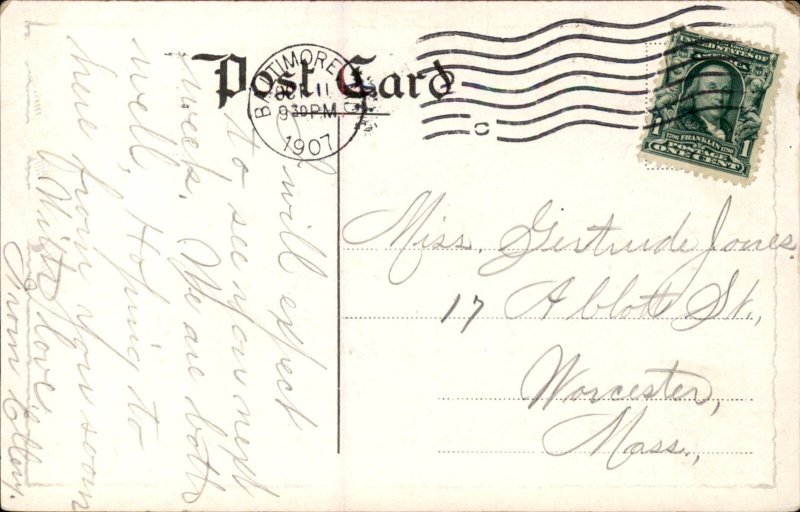 Post Card
BALTIMORE
11
9 30 PM
1907
UNITED STATES OF
AMERICA
1706 FRANKLIN 1790
POSTAGE
1 ONE CENT 1
C
I will expect
to, see you next
week. We are both
well, Hoping to
hear from you soon
With love,
From Ettery.
Miss. Gertrude Jones.
17 Abbott St.,
Worcester,
Mass.,